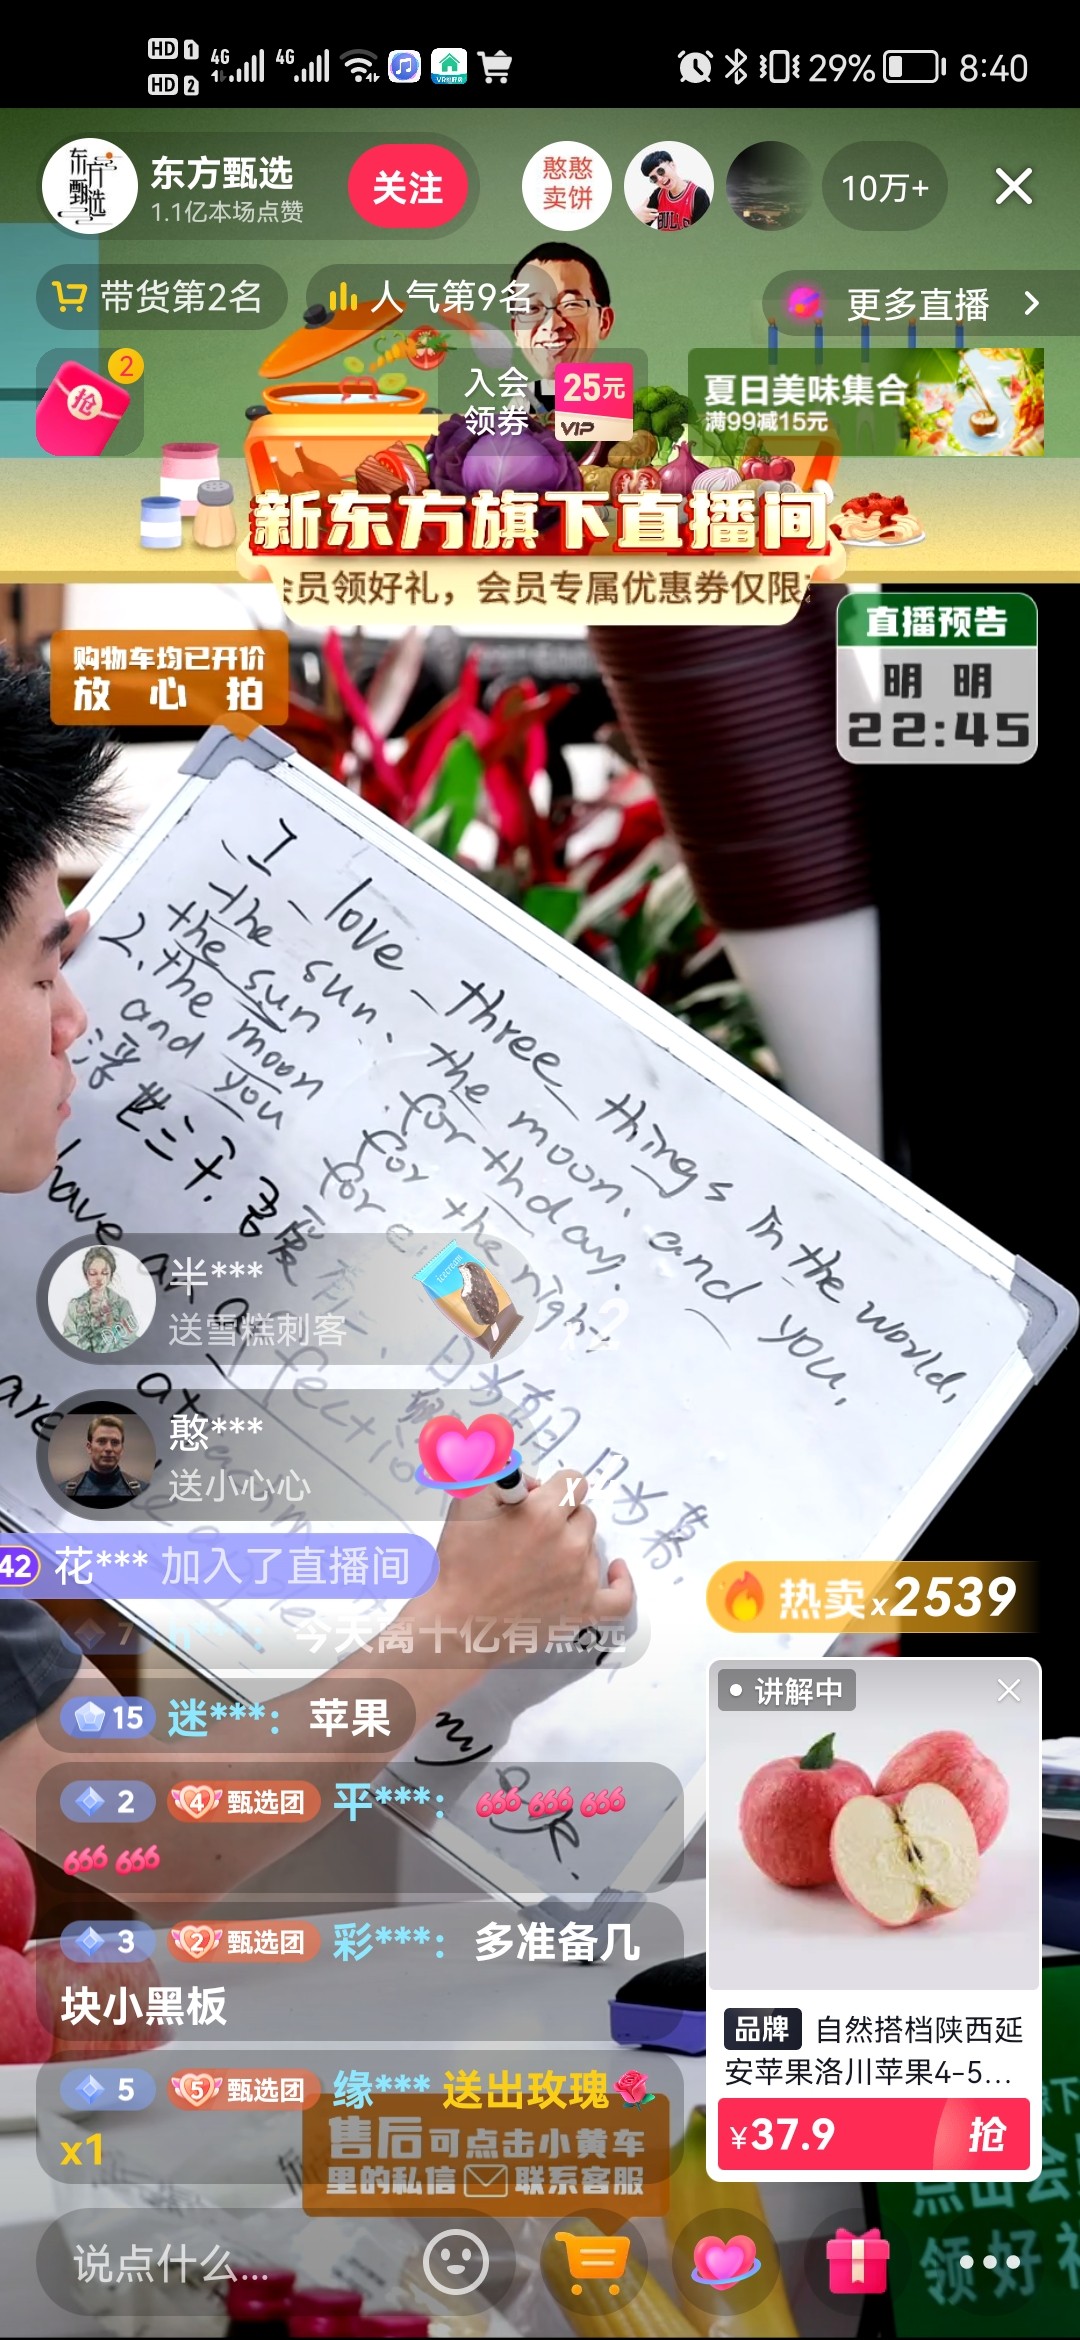 HD 1
HD 2
4G
4G
29%
8:40
东方甄选
东方甄选
1.1亿本场点赞
关注
憨憨
卖饼
10万+
带货第2名
人气第9名
更多直播
抢
2
入会
领券
25元
VIP
夏日美味集合
满99减15元
新东方旗下直播间
会员领好礼，会员专属优惠券仅限
购物车均已开价
放心拍
直播预告
明明
22:45
I love three things in the world,
the sun. the moon. and you,
the sun for thday.
2. the moon for the night
and you for e
浮世三千，吾爱有三，日为朝，月为暮，
have an affection
are
my
半***
送雪糕刺客
x2
憨***
送小心心
42 花*** 加入了直播间
7 h***： 今天离十亿有点远
15 迷***： 苹果
2 4 甄选团 平***： 666 666 666
666 666
3 2 甄选团 彩***： 多准备几
块小黑板
5 5 甄选团 缘*** 送出玫瑰
x1
售后可点击小黄车
里的私信联系客服
热卖x2539
讲解中
品牌 自然搭档陕西延
安苹果洛川苹果4-5...
¥37.9 抢
点击会
领好礼
说点什么...